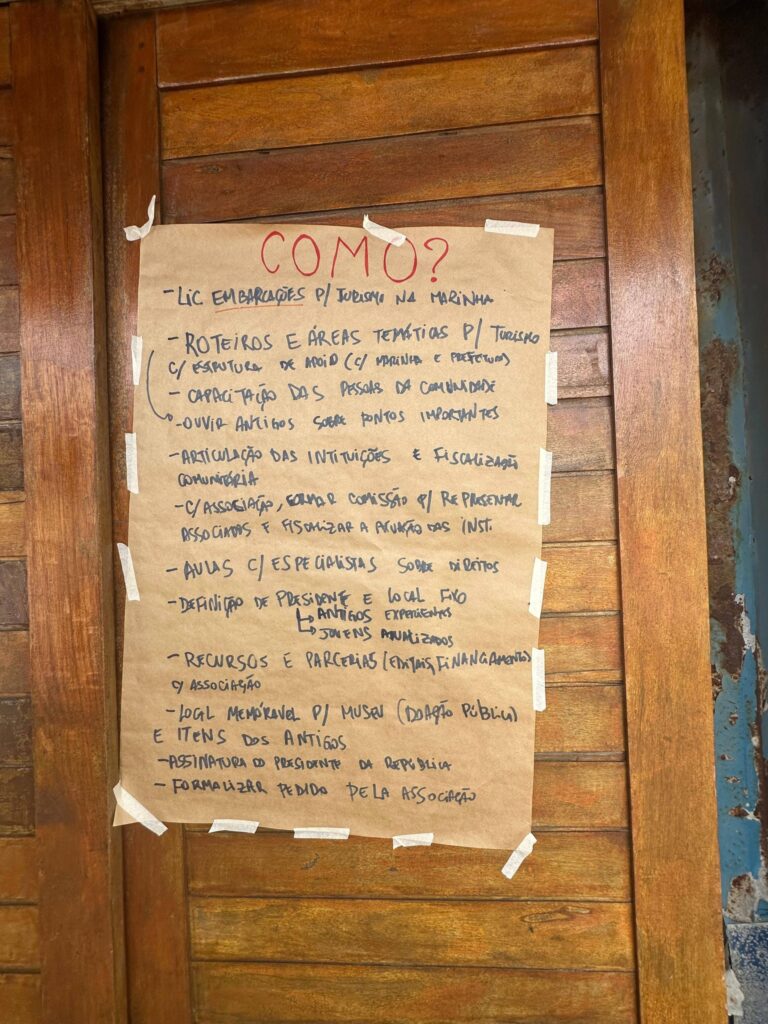 COMO?
- LIC EMBARCAÇÕES P/ TURISMO NA MARINHA
- ROTEIROS E ÁREAS TEMÁTICAS P/ TURISMO
C/ ESTRUTURA DE APOIO (C/ MARINHA E PREFEITURA)
- CAPACITAÇÃO DAS PESSOAS DA COMUNIDADE
- OUVIR ANTIGOS SOBRE PONTOS IMPORTANTES
- ARTICULAÇÃO DAS INTITUIÇÕES E FISCALIZAÇÃO
COMUNITÁRIA
- C/ ASSOCIAÇÃO, FORMAR COMISSÃO P/ REPRESENTAR
ASSOCIADAS E FISCALIZAR A ATUAÇÃO DAS INST.
- AULAS C/ ESPECIALISTAS SOBRE DIREITOS
- DEFINIÇÃO DE PRESIDENTE E LOCAL FIXO
↳ ANTIGOS EXPERIENTES
↳ JOVENS ATUALIZADOS
- RECURSOS E PARCERIAS (EDITAIS, FINANCIAMENTO)
C/ ASSOCIAÇÃO
- LOCAL MEMÓRAVEL P/ MUSEU (DOAÇÃO PÚBLICA)
E ITENS DOS ANTIGOS
- ASSINATURA DO PRESIDENTE DA REPÚBLICA
- FORMALIZAR PEDIDO PELA ASSOCIAÇÃO